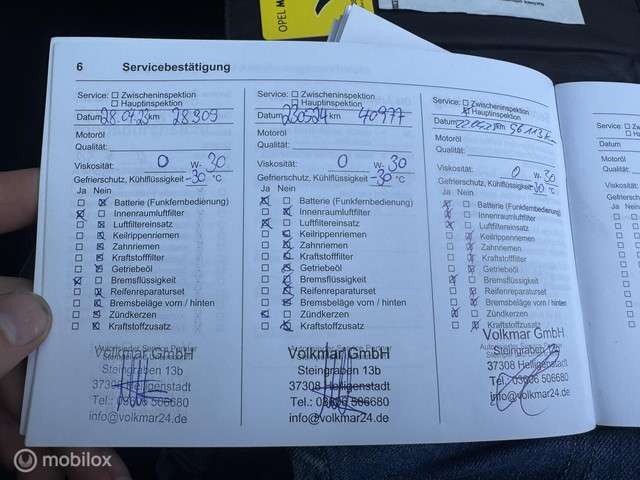 OPEL
6 Servicebestätigung
Service: Zwischeninspektion
Hauptinspektion
Datum 28.04.23 km 28.909
Motoröl
Qualität:
Viskosität: 0 W- 30
Gefrierschutz, Kühlflüssigkeit -30 °C
Ja Nein
Batterie (Funkfernbedienung)
Innenraumluftfilter
Luftfiltereinsatz
Keilrippenriemen
Zahnriemen
Kraftstofffilter
Getriebeöl
Bremsflüssigkeit
Reifenreparaturset
Bremsbeläge vorn / hinten
Zündkerzen
Kraftstoffzusatz
Volkmar GmbH
Steingraben 13b
37308 Heiligenstadt
Tel.: 03606 506680
info@volkmar24.de
Service: Zwischeninspektion
Hauptinspektion
Datum 230524 km 40977
Motoröl
Qualität:
Viskosität: 0 W- 30
Gefrierschutz, Kühlflüssigkeit -30 °C
Ja Nein
Batterie (Funkfernbedienung)
Innenraumluftfilter
Luftfiltereinsatz
Keilrippenriemen
Zahnriemen
Kraftstofffilter
Getriebeöl
Bremsflüssigkeit
Reifenreparaturset
Bremsbeläge vorn / hinten
Zündkerzen
Kraftstoffzusatz
Volkmar GmbH
Steingraben 13b
37308 Heiligenstadt
Tel.: 03606 506680
info@volkmar24.de
Service: Zwischeninspektion
Hauptinspektion
Datum km
Motoröl
Qualität:
Viskosität: 0 W- 30
Gefrierschutz, Kühlflüssigkeit -30 °C
Ja Nein
Batterie (Funkfernbedienung)
Innenraumluftfilter
Luftfiltereinsatz
Keilrippenriemen
Zahnriemen
Kraftstofffilter
Getriebeöl
Bremsflüssigkeit
Reifenreparaturset
Bremsbeläge vorn / hinten
Zündkerzen
Kraftstoffzusatz
Volkmar GmbH
Steingraben 13b
37308 Heiligenstadt
Tel.: 03606 506680
info@volkmar24.de
Service:
Datum
Motoröl
Qualität:
Viskosität:
Gefrierschutz
Ja Nein
mobilox